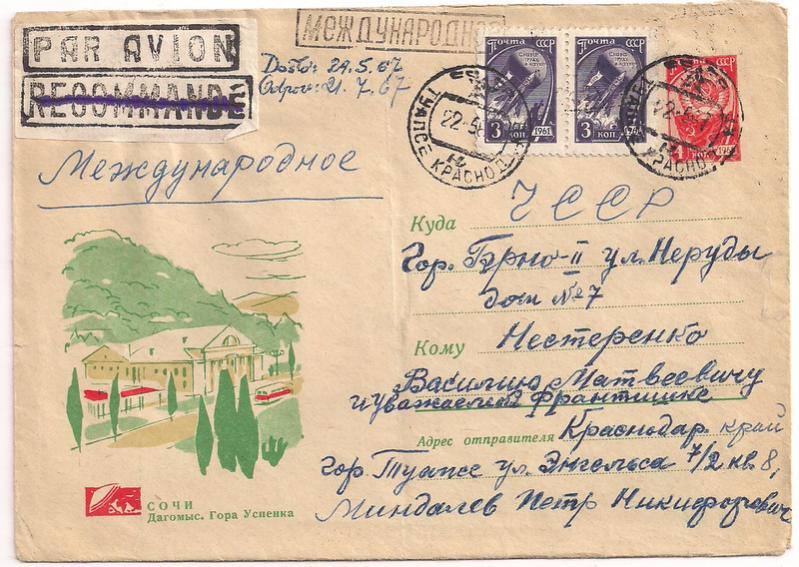 PAR AVION
RECOMMANDÉ
МЕЖДУНАРОДНОЕ
Došlo: 29.5.67
Odpov: 21.7.67
Почта СССР
3 коп. 1961
Почта СССР
3 коп.
СССР
ТУАПСЕ КРАСНОД.
22-5
ТУАПСЕ КРАСНОД.
22-5
Международное
Куда ЧССР
гор. Бърно-II ул. Неруды
дом № 7
Кому Нестеренко
Василию Матвеевичу
и уважаемой Франтишке
Адрес отправителя Краснодар. край
гор. Туапсе ул. Энгельса 7/2 кв. 8,
Миндалев Петр Никифорович
СОЧИ
Дагомыс. Гора Успенка